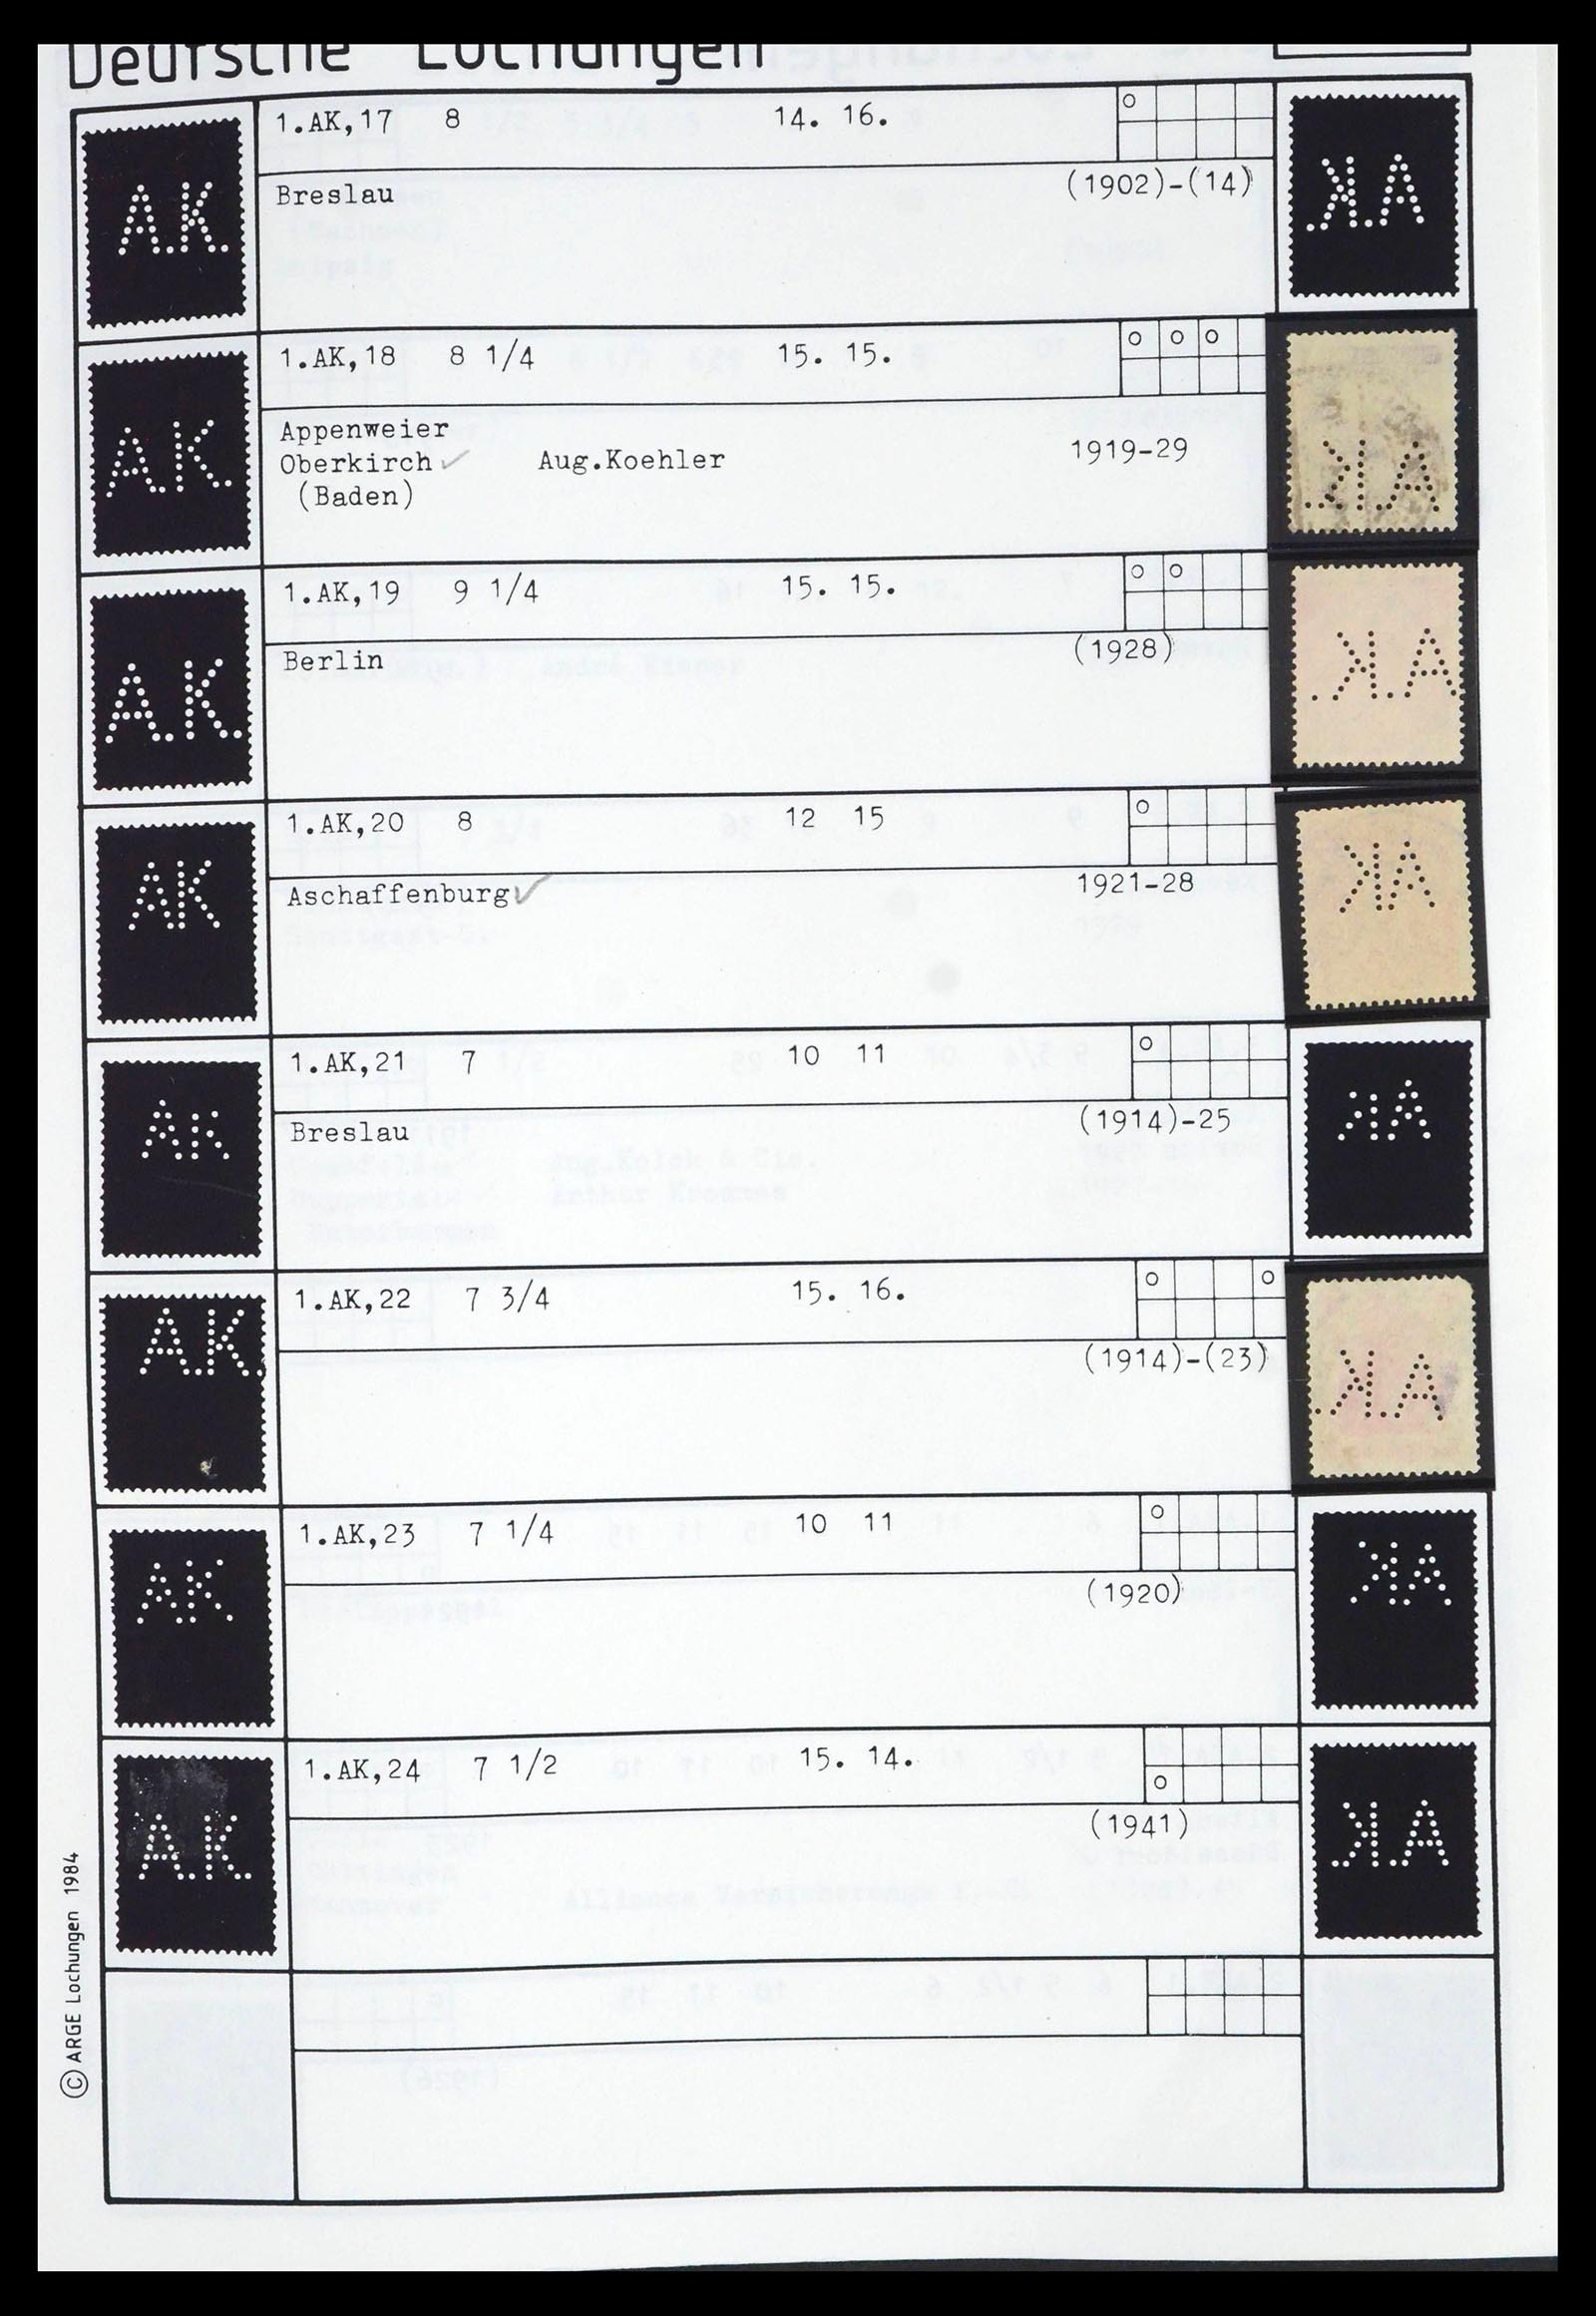 Deutsche Lochungen
A.K. 1.AK,17 8 14. 16. A.K.
Breslau (1902)-(14)
A.K. 1.AK,18 8 1/4 15. 15. A.K.
Appenweier
Oberkirch ✓ Aug.Koehler 1919-29
(Baden)
A.K. 1.AK,19 9 1/4 15. 15. A.K.
Berlin (1928)
AK 1.AK,20 8 12 15 AK
Aschaffenburg ✓ 1921-28
AK 1.AK,21 7 10 11 AK
Breslau (1914)-25
A.K. 1.AK,22 7 3/4 15. 16. A.K.
(1914)-(23)
AK 1.AK,23 7 1/4 10 11 AK
(1920)
A.K. 1.AK,24 7 1/2 15. 14. A.K.
(1941)
© ARGE Lochungen 1984